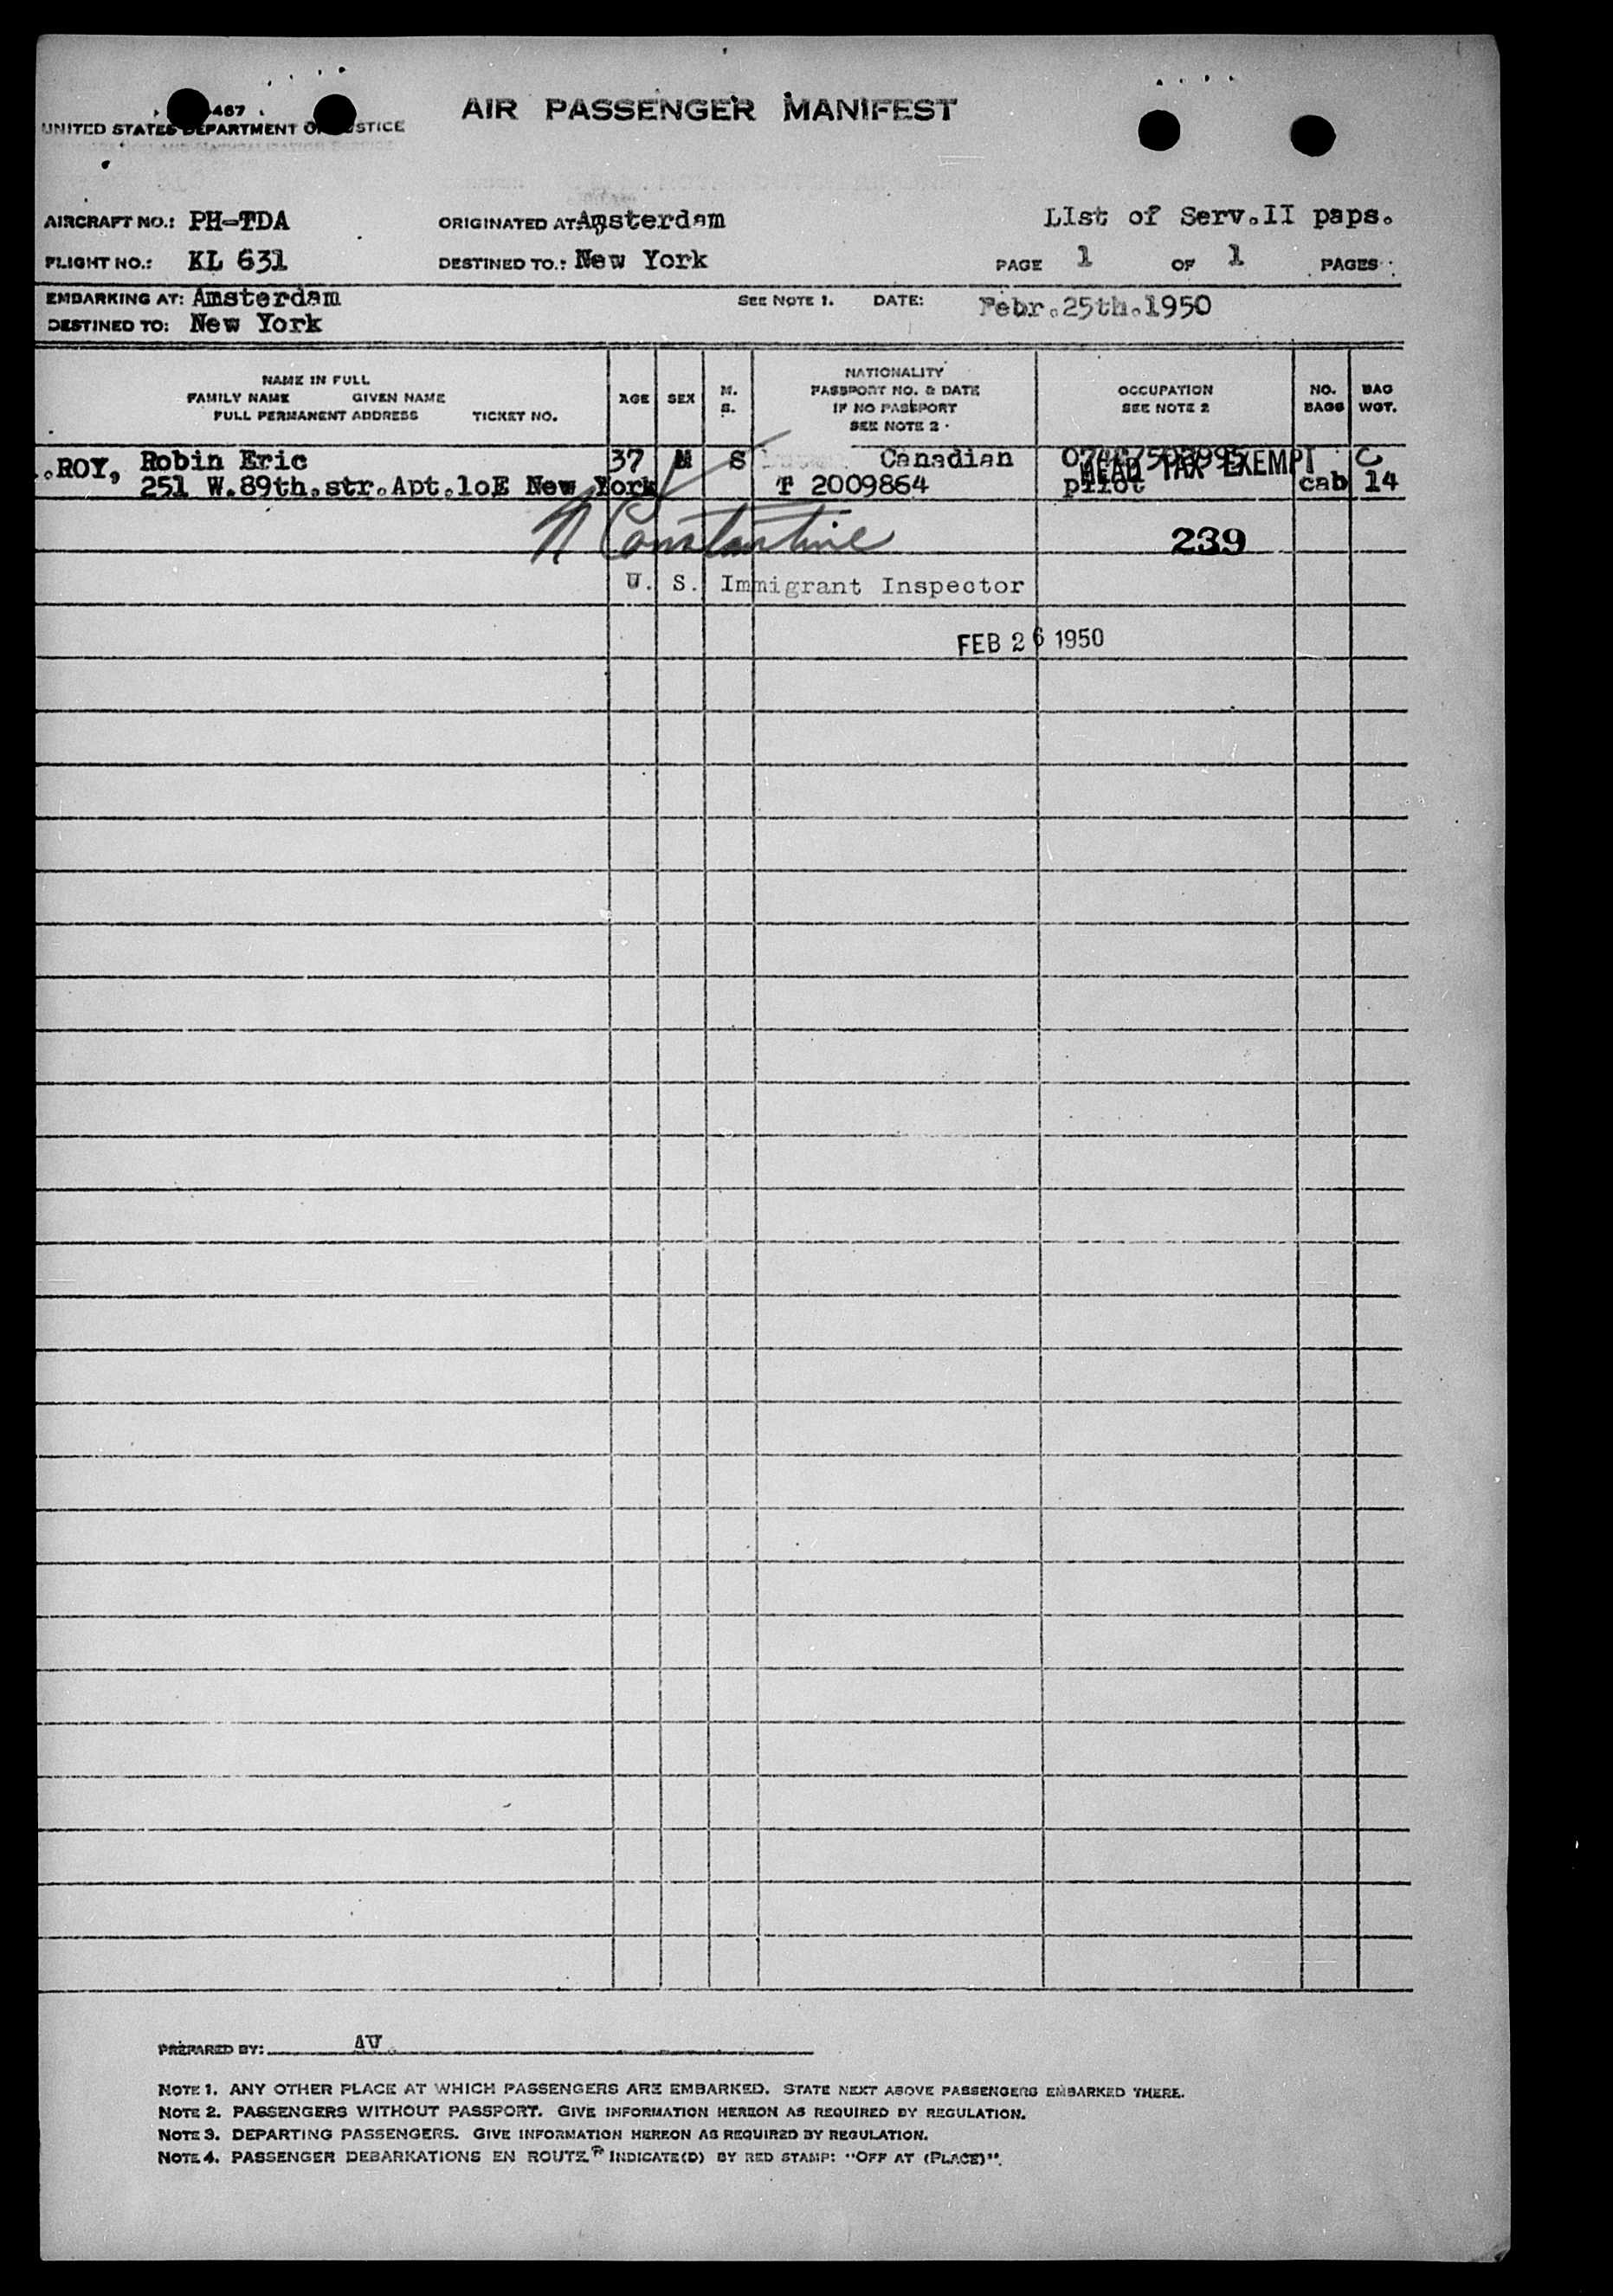 467
UNITED STATES DEPARTMENT OF JUSTICE
AIR PASSENGER MANIFEST
AIRCRAFT NO.: PH-TDA ORIGINATED AT: Amsterdam LIst of Serv.II paps.
FLIGHT NO.: KL 631 DESTINED TO.: New York PAGE 1 OF 1 PAGES
EMBARKING AT: Amsterdam SEE NOTE 1. DATE: Febr.25th.1950
DESTINED TO: New York
NAME IN FULL
FAMILY NAME GIVEN NAME
FULL PERMANENT ADDRESS TICKET NO.
AGE SEX M. S.
NATIONALITY
PASSPORT NO. & DATE
IF NO PASSPORT
SEE NOTE 2
OCCUPATION
SEE NOTE 2
NO. BAGS
BAG WGT.
.ROY, Robin Eric 37 M S Canadian C
HEAD TAX EXEMPT
251 W.89th.str.Apt.10E New York T 2009864 pilot cab 14
N Constantine 239
U. S. Immigrant Inspector
FEB 26 1950
PREPARED BY: AV
NOTE 1. ANY OTHER PLACE AT WHICH PASSENGERS ARE EMBARKED. STATE NEXT ABOVE PASSENGERS EMBARKED THERE.
NOTE 2. PASSENGERS WITHOUT PASSPORT. GIVE INFORMATION HEREON AS REQUIRED BY REGULATION.
NOTE 3. DEPARTING PASSENGERS. GIVE INFORMATION HEREON AS REQUIRED BY REGULATION.
NOTE 4. PASSENGER DEBARKATIONS EN ROUTE INDICATE(D) BY RED STAMP: "OFF AT (PLACE)".